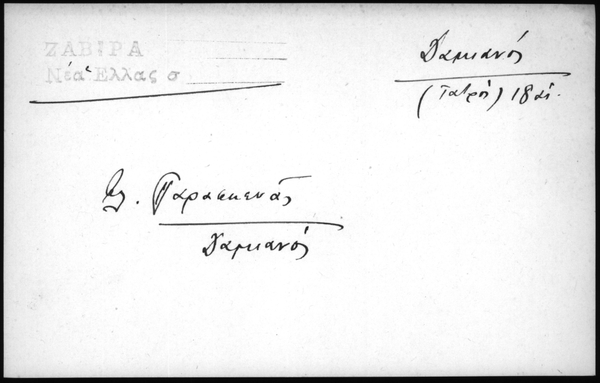 ΖΑΒΙΡΑ
Νέα Ἑλλας σ
Δαμιανός
(Ἰατρός) 18 αἰ.
Βλ. Παρασκευάς
Δαμιανός